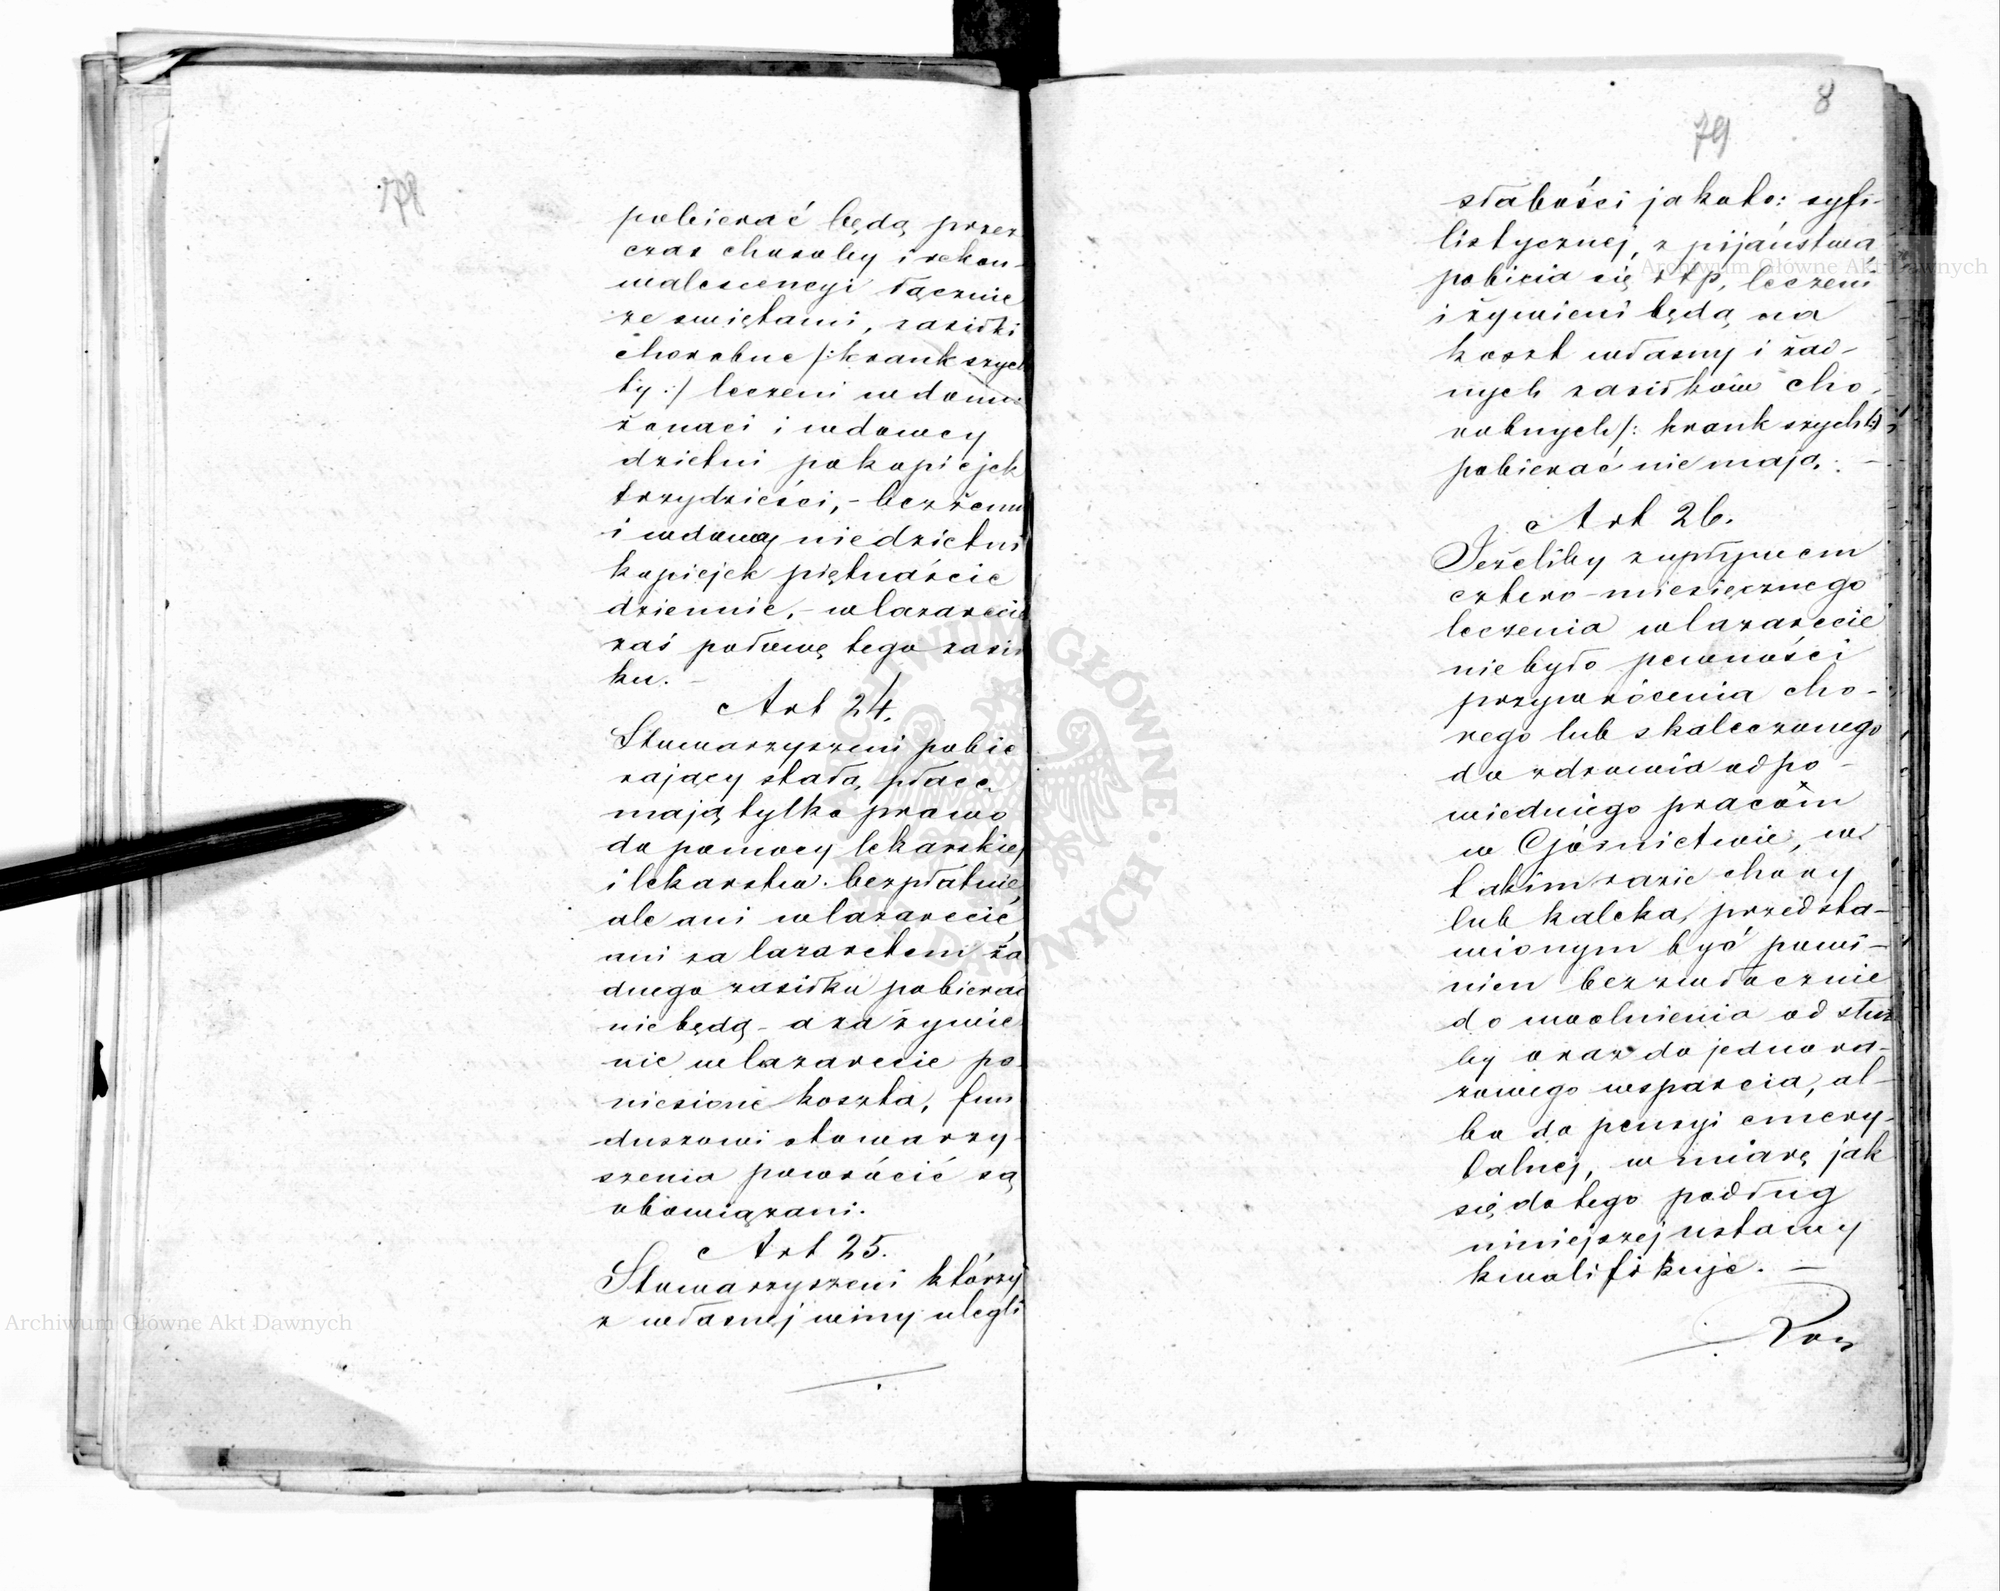 178
pobierać będą przez
czas choroby i rekon-
walescencyi łącznie
ze swiętami, zasiłki
chorobne /:krankszych
ty:/ leczeni w domu
żonaci i wdowcy
dzietni po kopiejek
trzydzieści, - bezżenni
i wdowcy niedzietni
kopiejek piętnaście
dziennie, - w lazarecie
zaś połowę tego zasił
ku. -
Art 24.
Stowarzyszeni pobie
rający stałą płacę
mają tylko prawo
do pomocy lekarskiej
i lekarstw bezpłatnie
ale ani w lazarecie
ani za lazaretem ża
dnego zasiłku pobierać
nie będą - a za żywie
nie w lazarecie po-
niesione koszta, fun
duszowi stowarzy-
szenia powrócić są
obowiązani.
Art 25.
Stowarzyszeni którzy
z własnej winy ulegli
8
79
słabości jakoto: syfi-
listycznej, z pijaństwa
pobicia się i t p, leczeni
i żywieni będą na
koszt własny i żad-
nych zasiłków cho-
robnych /: krankszycht:/
pobierać nie mają. -
Art 26.
Jeżeliby z upływem
cztero-miesięcznego
leczenia w lazarecie
nie było pewności
przywrócenia cho-
rego lub skaleczonego
do zdrowia odpo-
wiedniego pracom
w Górnictwie, w
takim razie chory
lub kaleka, przedsta-
wionym być powi-
nien bezzwłocznie
do uwolnienia od służ
by oraz do jednora-
zowego wsparcia, al-
bo do pensyi emery-
talnej, w miarę jak
się do tego podług
niniejszej ustawy
kwalifikuje. -
Roz
Archiwum Główne Akt Dawnych
Archiwum Główne Akt Dawnych
ARCHIWUM GŁÓWNE AKT DAWNYCH